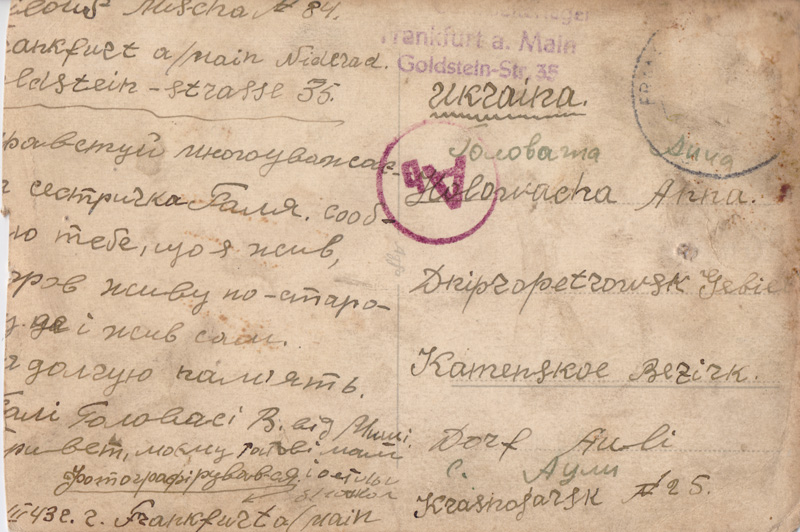 Mischa № 84.
rankfurt a/main Niderad.
oldstein-strasse 35.
равствуй многоуважає-
сестричка Галя. сооб-
ю тебе, що я жив,
оров живу по-старо-
у де і жив сам.
долгую память.
Галі Головасі В. від Миші.
ривет, моєму татові мамі
Фотографірувався
43 г. г. Frankfurt a/main
Frankfurt a. Main
Goldstein-Str. 35
Ukraina.
Головаша Анна
Holowacha Anna.
Ab
Dnipropetrowsk Gebie
Kamenskoe Bezirk.
Dorf Auli
с. Аули
Krasnojarsk № 25.